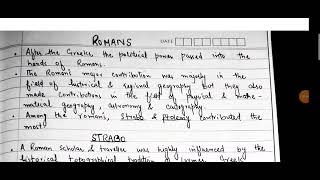 ROMANS
DATE
• After the Greeks, the political power passed into the
hands of Romans.
• The Romans major contribution was majorly in the
field of historical & regional geography but they also
made contributions in the field of physical & mathe-
matical geography, astronomy & cartography.
• Among the romans, Strabo & Ptolemy contributed the
most.
STRABO
• A Roman scholar & traveller was highly influenced by the
historical topographical tradition of former Greek